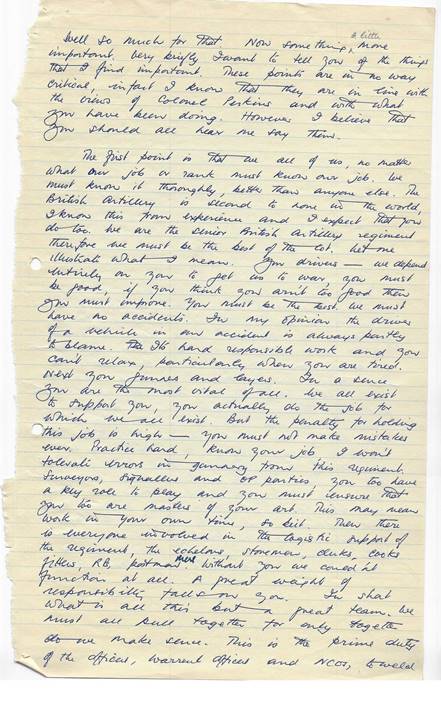 a little
Well so much for that. Now something more
important. Very briefly I want to tell you of the things
that I find important. These points are in no way
critical, infact I know that they are in line with
the views of Colonel Perkins and with what
you have been doing. However I believe that
you should all hear me say them.
The first point is that we all of us, no matter
what our job or rank must know our job. We
must know it thoroughly, better than anyone else. The
British Artillery is second to none in the world,
I know this from experience and I expect that you
do too. We are the senior British Artillery regiment
therefore we must be the best of the lot. Let me
illustrate what I mean. You drivers — we depend
entirely on you to get us to war, you must
be good, if you think you arn't too good then
you must improve. You must be the best. We must
have no accidents. In my opinion the driver
of a vehicle in an accident is always partly
to blame. Its hard responsible work and you
can't relax, particularly when you are tired.
Next you gunners and layers. In a sence
you are the most vital of all. We all exist
to support you, you actually do the job for
which we all exist. But the penalty for holding
this job is high — you must not make mistakes
ever. Practice hard, know your job I won't
tolerate errors in gunnery from this regiment.
Surveyors, signallers and OP parties, you too have
a key role to play and you must ensure that
you too are masters of your art. This may mean
work in your own time, so be it. Then there
is everyone involved in the logistic support of
the regiment, the echelons, storemen, clerks, cooks
fitters, RB, postman without you we could'nt
function at all. A great weight of
responsibility falls on you. In short
what is all this but a great team. We
must all pull together for only together
do we make sence. This is the prime duty
of the officers, warrant officers and NCOs, to weld